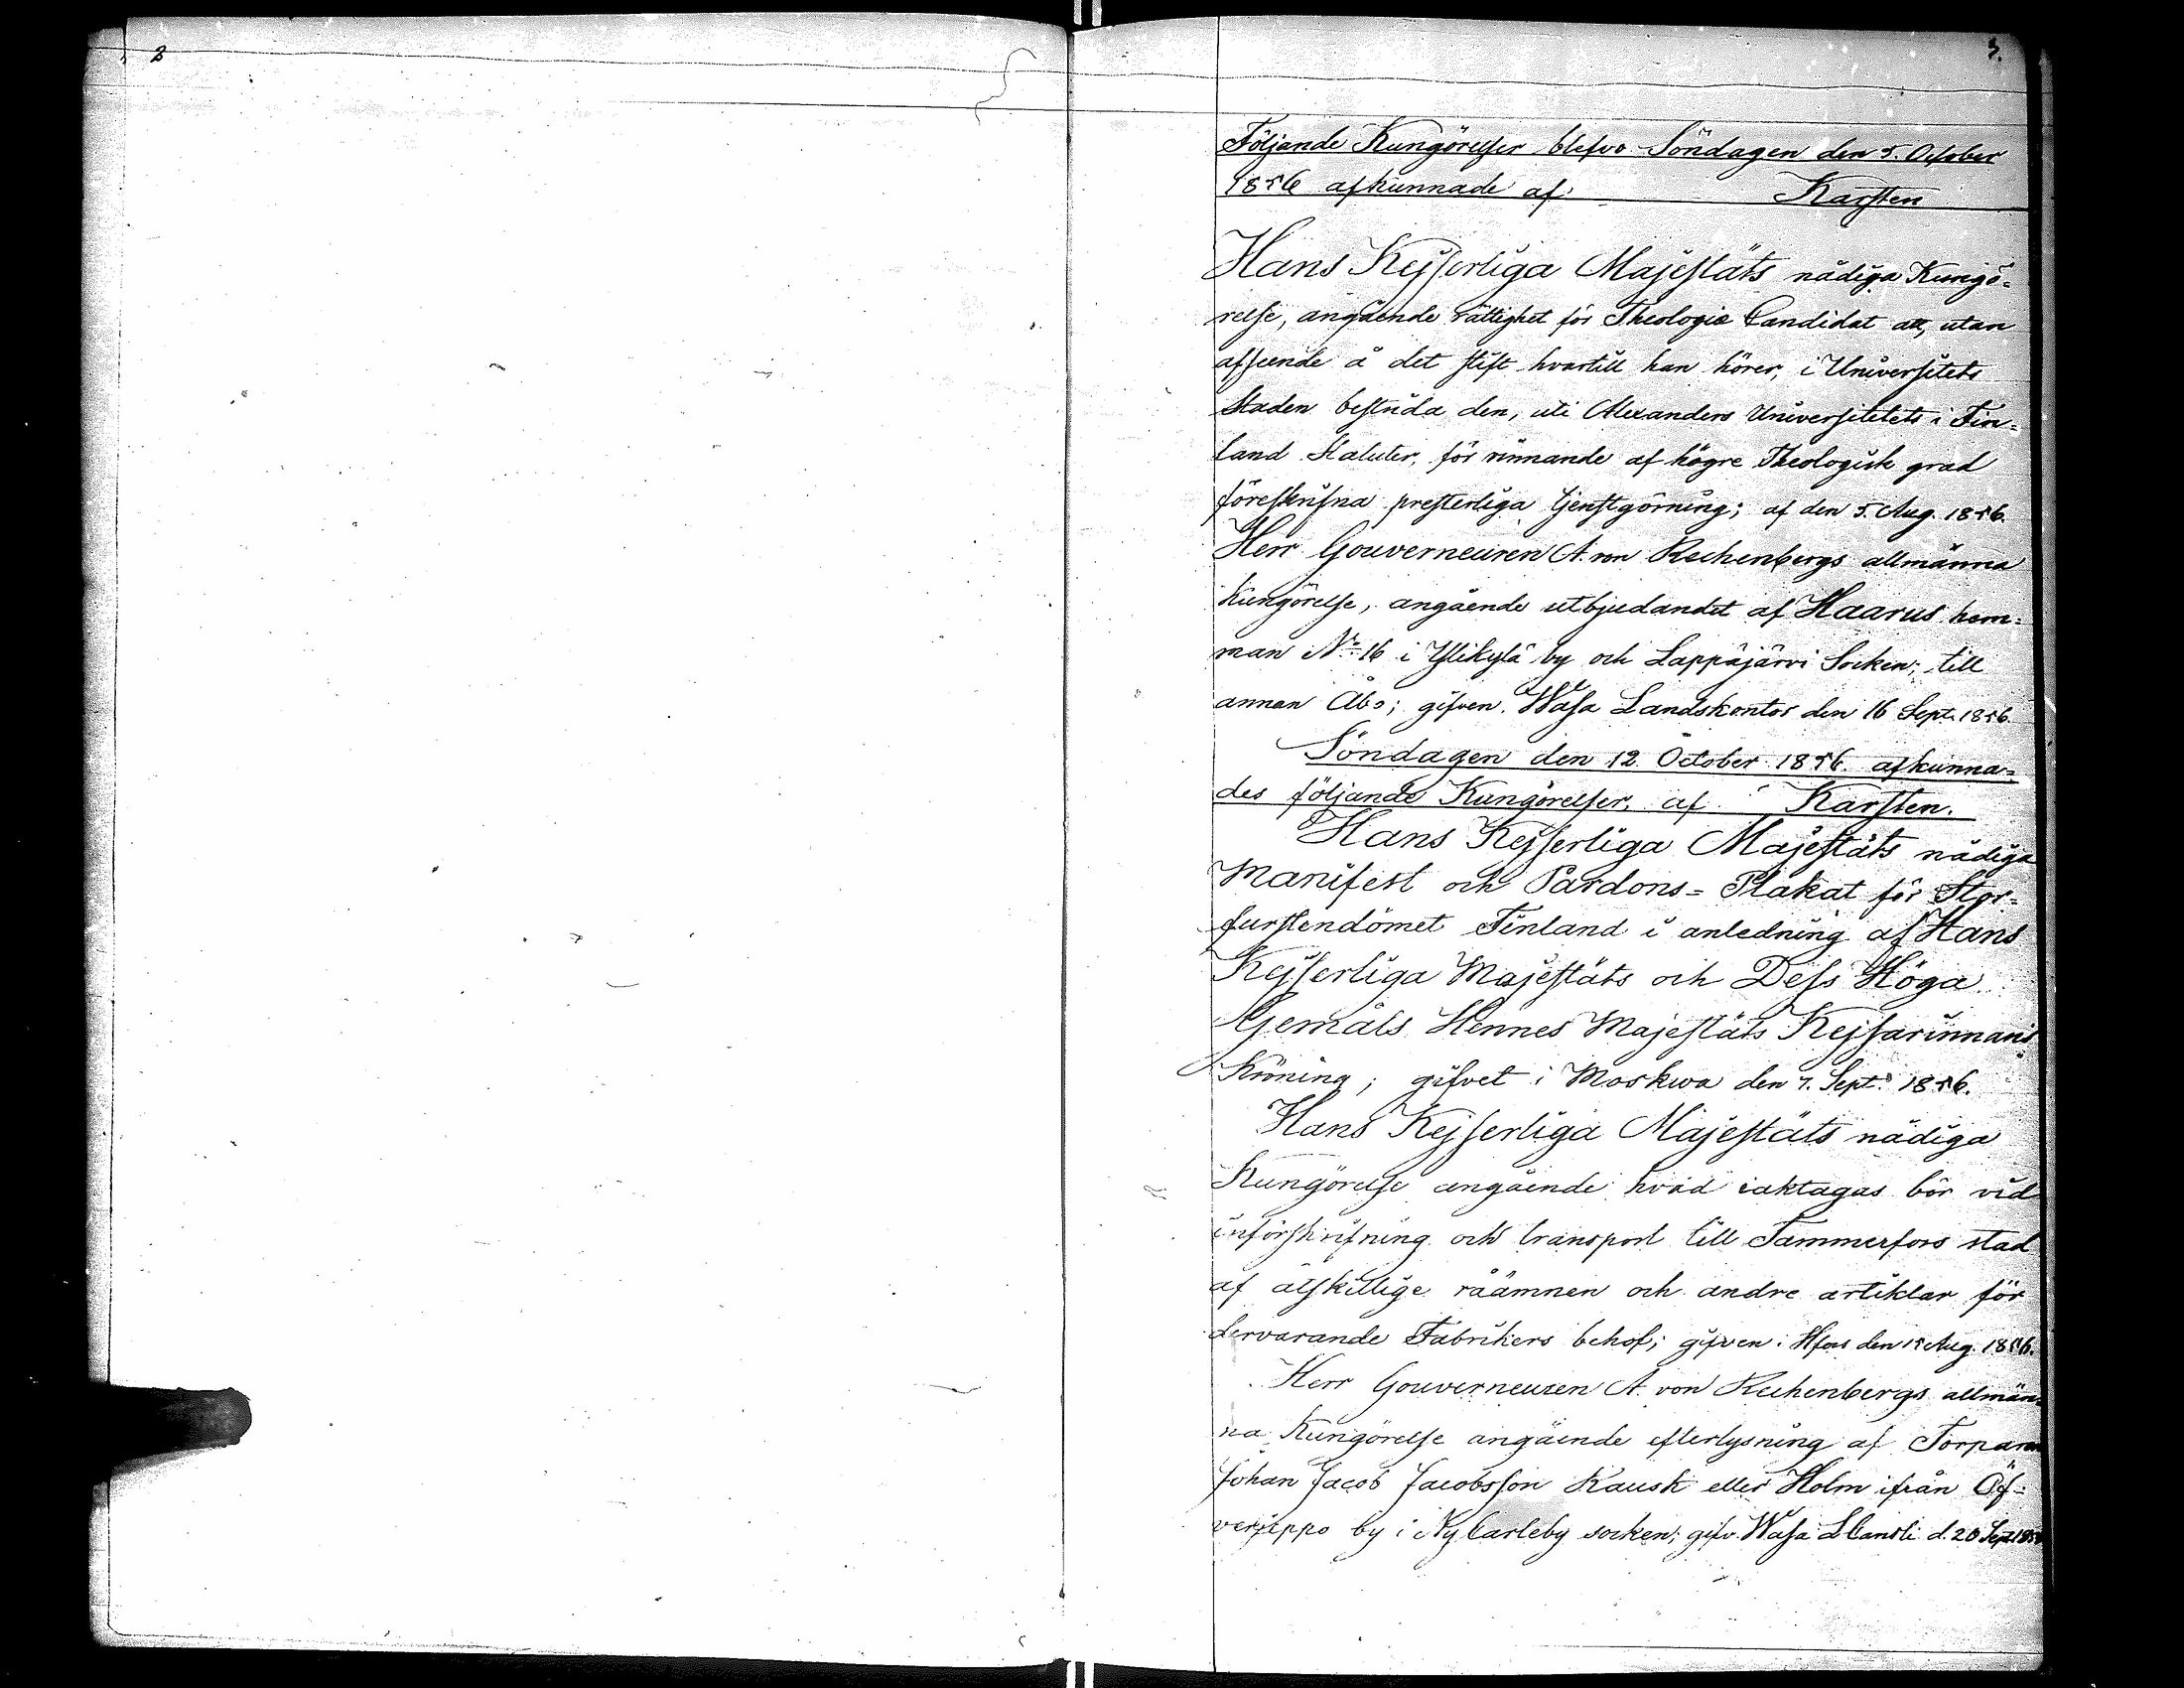 2
3.
Följande Kungörelser blefvo Söndagen den 5. October
1856 afkunnade af Karsten
Hans Kejserliga Majestäts nådiga Kungö=
relse, angående rättighet för Theologie Candidat att, utan
afseende å det stift hvartill han hörer, i Universitets
Staden bestrida den, uti Alexanders Universitetets i Fin=
land Statuter, för vinnande af högre Theologisk grad
föreskrifna presterliga tjenstgörning; af den 5. Aug. 1856.
Herr Gouverneuren A. von Rechenbergs allmänna
Kungörelse, angående utbjudandet af Haarus hem=
man No 16 i Ylikylä by och Lappajärvi Socken; till
annan Åbo; gifven. Wasa Landskontor den 16 Sept. 1856.
Söndagen den 12 October 1856. afkunna=
des följande Kungörelser, af Karsten.
Hans Kejserliga Majestäts nådiga
Manifest och Pardons=Plakat för Stor=
furstendömet Finland i anledning af Hans
Kejserliga Majestäts och Dess Höga
Gemåls Hennes Majestäts Kejsarinnans
Kröning; gifvet i Moskwa den 7. Sept. 1856.
Hans Kejserliga Majestäts nådiga
Kungörelse angående hvad iaktagas bör vid
införskrifning och transport till Tammerfors stad
af åtskillige råämnen och andre artiklar för
dervarande Fabrikers behof; gifven i Hfors den 15 Aug. 1856.
Herr Gouverneuren A. von Rechenbergs allmän=
na Kungörelse angående efterlysning af Torparen
Johan Jacob Jacobsson Kausk eller Holm ifrån Öf=
verjeppo by i NyCarleby socken; gifv. Wasa LCansli d. 20 Sept 1856